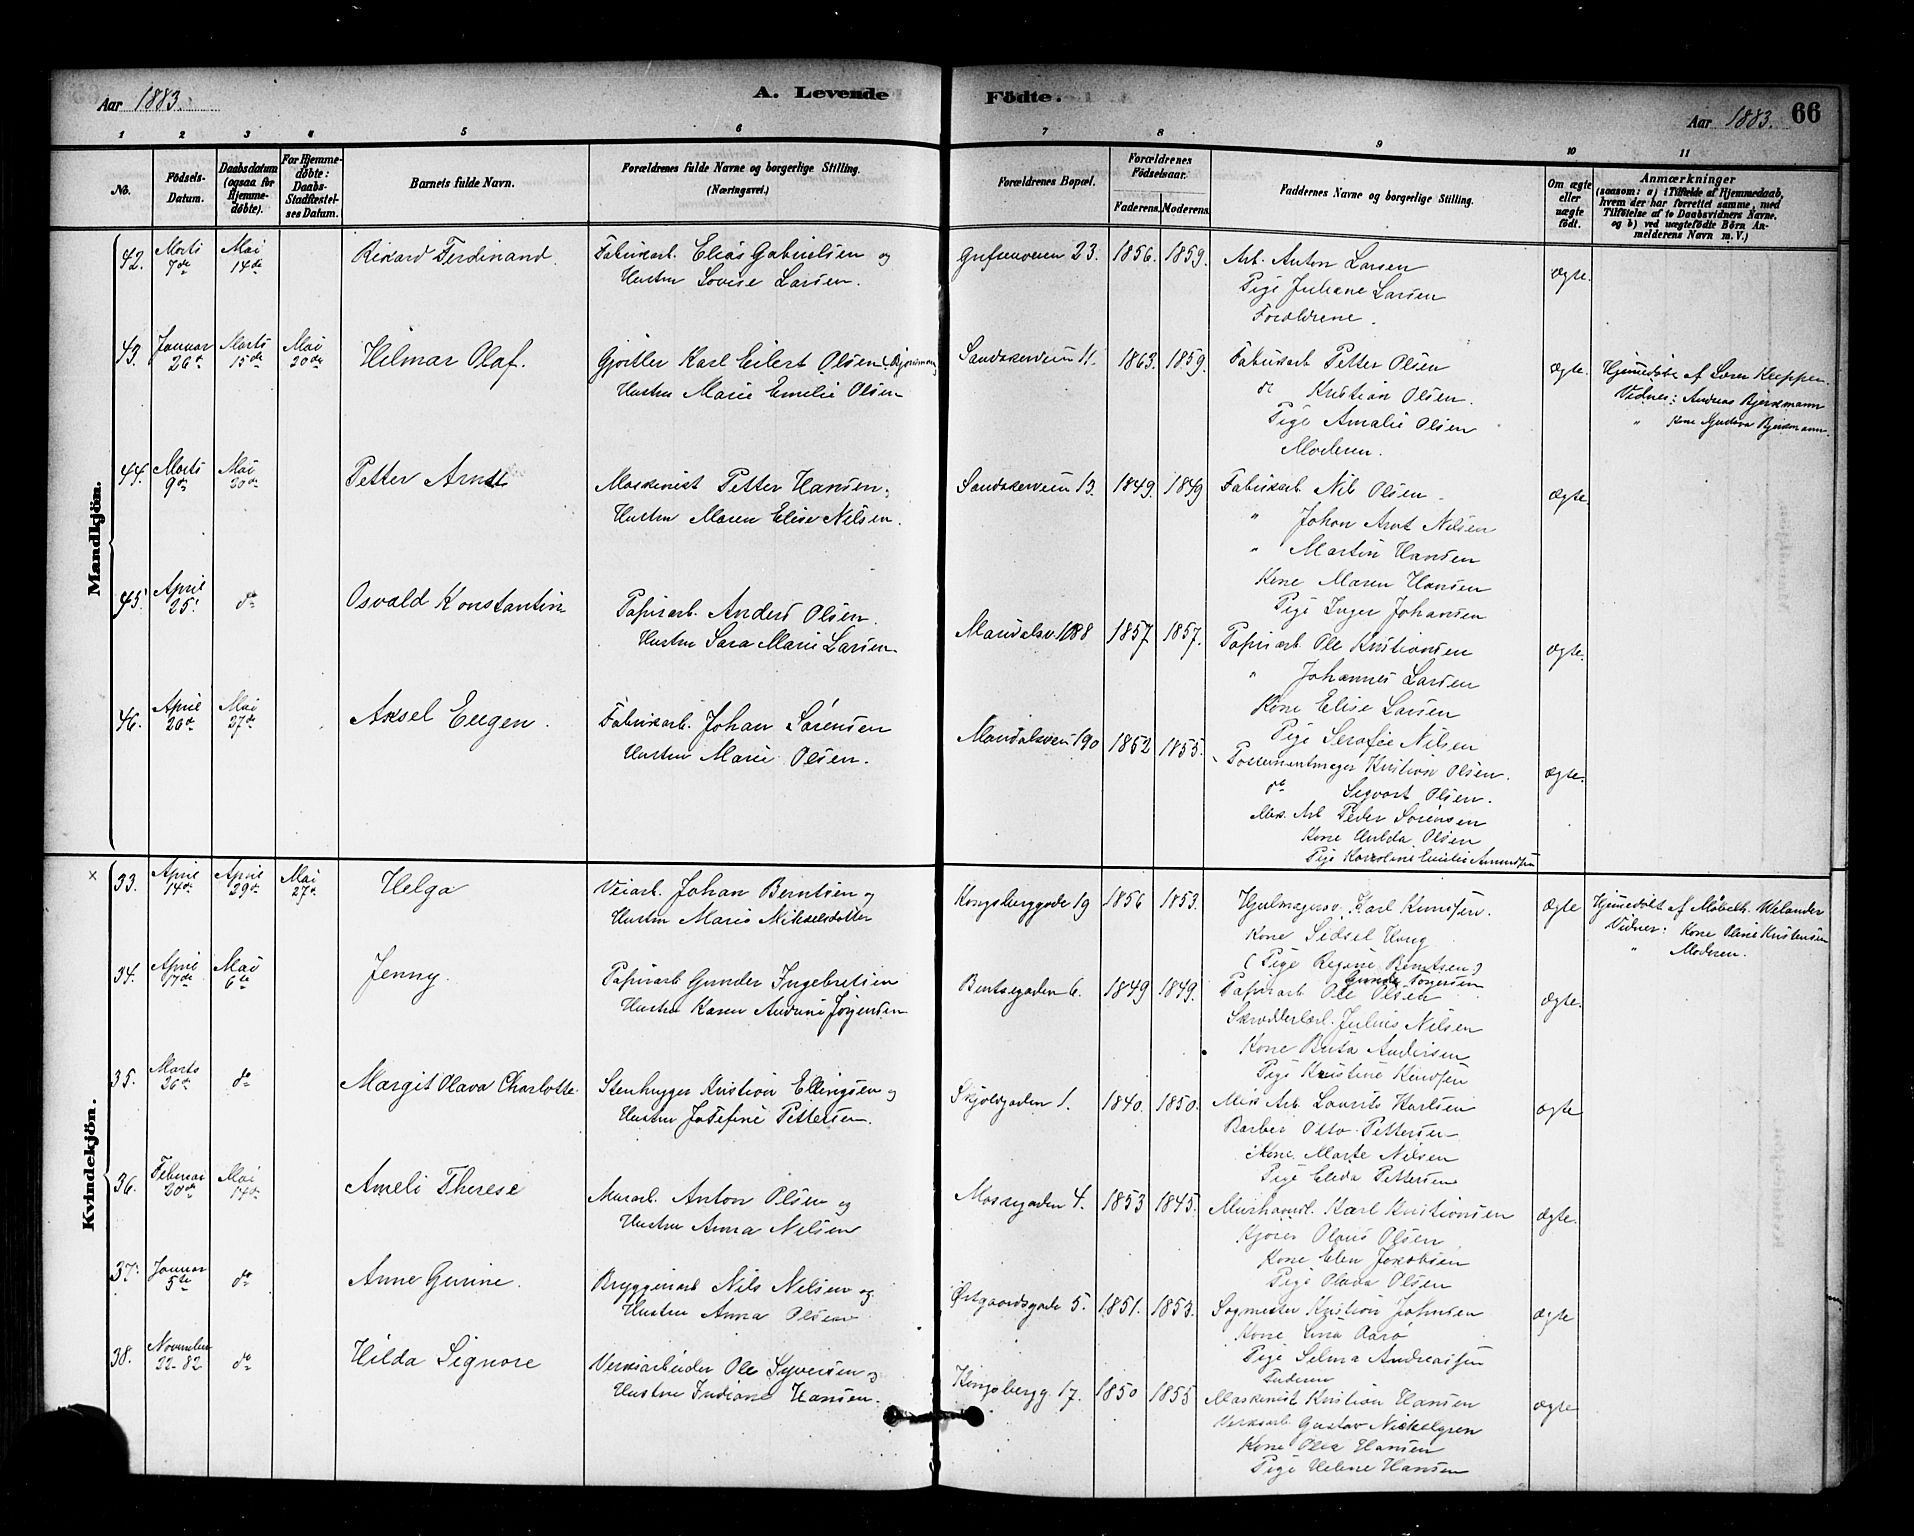 Aar 1883.
A. Levende
Födte.
Aar 1883.
66
1 2 3 4 5 6 7 8 9 10 11
No.
Födsels-
Datum.
Daabsdatum
(ogsaa for
Hjemme-
døbte).
For Hjemme-
døbte:
Daabs-
Stadfæstel-
ses Datum.
Barnets fulde Navn.
Forældrenes fulde Navne og borgerlige Stilling.
(Næringsvei.)
Forældrenes Bopæl.
Forældrenes
Födselsaar.
Faderens. Moderens.
Faddernes Navne og borgerlige Stilling.
Om ægte
eller
uægte
født.
Anmærkninger
(saasom: a) i Tilfælde af Hjemmedaab,
hvem der har forrettet samme, med
Tilföielse af to Daabsvidners Navne.
og b) ved uægtefödte Börn An-
melderens Navn m. V.)
Mandkjön.
42. Marts 7de Mai 14de Rikard Ferdinand. Fabrikarb. Elias Gabrielsen og
Hustru Lovise Larsen.
Grefsenveien 23. 1856. 1859.
Arb. Anton Larsen
Pige Juliane Larsen
Forældrene.
Ægte.
43. Januar 26de Marts 15de Mai 20de Hilmar Olaf. Gjørtler Karl Eilert Olsen
Hustru Marie Emelie Olsen
Sandakerveien 11. 1863. 1859.
Fabrikarb Petter Olsen
do Kristian Olsen.
Pige Amalie Olsen
Moderen.
Ægte.
Hjemedøbt af Søren Kleppen.
Vidner: Andreas Bjerkmann
" Kone Gustava Bjerkmann.
44. Marts 9de Mai 20de Petter Arndt Maskinist Petter Hansen,
Hustru Maren Elise Nilsen.
Sandakerveien 13. 1849. 1849
Fabrikarb. Nils Olsen.
" Johan Arnt Nilsen
" Martin Hansen
Kone Maren Hansen
Pige Inger Johansen
Ægte.
45. April 25. do Osvald Konstantin Papirarb. Anders Olsen.
Hustru Sara Marie Larsen
Maridalsv. 188 1857. 1857.
Papirarb. Ole Kristiansen
" Johannes Larsen
Kone Elise Larsen
Pige Serafie Nilsen
Ægte.
46. April 26de Mai 27de Aksel Eugen. Fabrikarb. Johan Sørensen
Hustru Marie Olsen.
Maridalsveien 190 1852 1855.
Possementmager Kristian Olsen.
do Sigvart Olsen.
Mek. Arb Peder Sørensen
Kone Hulda Olsen
Pige Karoline Amundsen
Ægte.
Kvindekjön.
× 33. April 14de April 29de Mai 27de Helga Veiarb. Johan Berntsen og
Hustru Maris Mikkelsdatter
Kongsberggade 19 1856 1853.
Hjulmagersv. Karl Knudsen.
Kone Sidsel Haug
(Pige Regine Berntsen)
Ægte
Hjemedøbt af Møbelh. Welander
Vidner: Kone Oline Kristensen
" Moderen.
34. April 17de Mai 6te Jenny. Papirarb Gunder Ingebretsen
Hustru Karen Andrine Jørgensen
Bentsegaden 6. 1849 1849.
Papirarb Ole Olsen
Skrædderl. Julius Nilsen
Kone Berta Andersen
Pige Kristine Knudsen
Ægte.
35. Marts 26de do Margit Olava Charlotte Stenhugger Kristian Ellingsen og
Hustru Josefine Pettersen.
Skjoldgaden 1. 1840. 1850.
Mek Arb. Laurits Karlsen
Barber Otto Pettersen
Kone Marte Nilsen
Pige Elida Pettersen
Ægte
36. Februar 20de Mai 14de Ameli Therese Murarb. Anton Olsen og
Hustru Anna Nilsen
Mossegaden 4. 1853 1845.
Murhaandl. Karl Kristiansen
Kjører Olaus Olsen
Kone Elen Jakobsen
Pige Olava Olsen
Ægte.
37. Januar 5te do Anne Gurine. Bryggeriarb Nils Nilsen og
Hustru Anna Olsen
Østgaardsgade 5. 1851. 1853.
Sagmester Kristian Johnsen
Kone Lina Aarø
Pige Selma Andreassen
Faderen
Ægte
38. November 22-82 do Hilda Signore Verksarbeider Ole Syversen og
Hustru Indiane Hansen.
Kongsbergg 17. 1850 1855
Maskinist Kristian Hansen
Verksarb. Gustav Nickelgren
Kone Olea Hansen
Pige Helene Hansen
Ægte